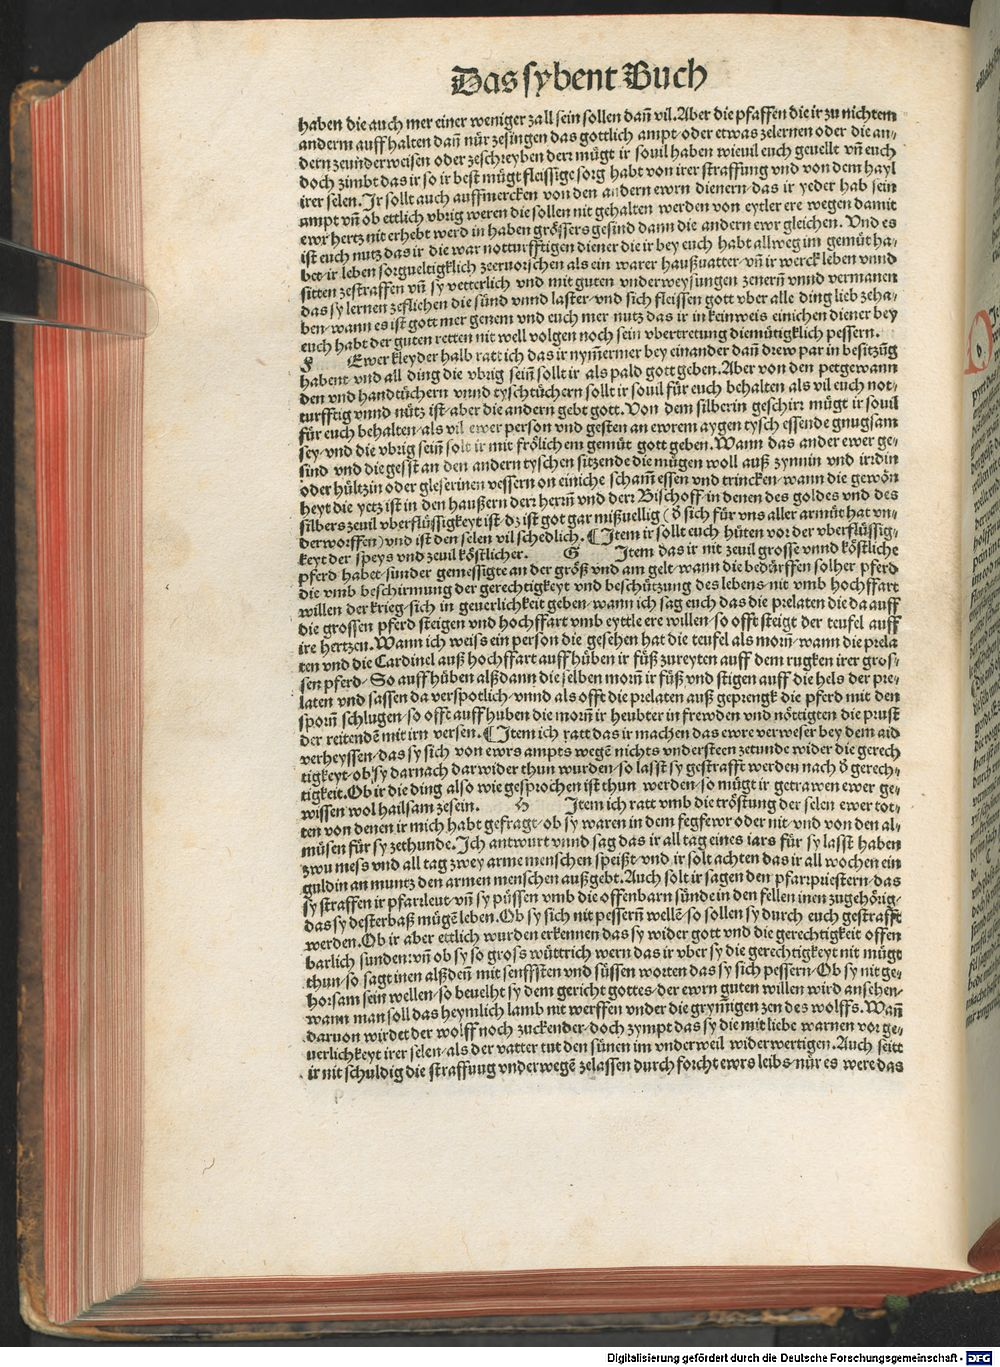 Das sybent Buch
haben die auch mer einer weniger zall sein sollen dañ vil. Aber die pfaffen die ir zu nichtem
anderm auff halten dañ nůr zesingen das gottlich ampt/oder etwas zelernen oder die an/
dern zeunderweisen oder zeschreyben derr můgt ir souil haben wieuil euch geuellt vñ euch
doch zimbt das ir so ir best můgt fleissige sorg habt von irer straffung vnd von dem hayl
irer selen. Ir sollt auch auffmercken von den andern ewrn dienern/das ir yeder hab sein
ampt vñ ob ettlich vbrig weren die sollen nit gehalten werden von eytler ere wegen damit
ewr hertz nit erhebt werd in haben grössers gesind dann die andern ewr gleichen. Vnd es
ist euch nutz das ir die war notturfftigen diener die ir bey euch habt allweg im gemüt ha/
bet/ir leben sorgueltigklich zeeruorschen als ein warer haußuatter/vñ ir werck leben vnnd
sitten zestraffen vñ sy vetterlich vnd mit guten vnderweysungen zenerñ vnnd vermanen
das sy lernen zeflichen die sünd vnnd laster/vnd sich fleissen gott vber alle ding lieb zeha/
ben/wann es ist gott mer genem vnd euch mer nutz das ir in keinweis einichen diener bey
euch habt der guten retten nit well volgen noch sein vbertretung diemütigklich pessern.
F Ewer kleyder halb ratt ich das ir nym̃ermer bey einander dañ drew par in besitzũg
habent/vnd all ding die vbrig seiñ sollt ir als pald gott geben. Aber von den petgewann
den vnd handtüchern vnnd tyschtüchern sollt ir souil für euch behalten als vil euch not/
turfftig vnnd nütz ist/aber die andern gebt gott. Von dem silberin geschirr mügt ir souil
für euch behalten/als vil ewer person vnd gesten an ewrem aygen tysch essende gnugsam
sey/vnd die vbrig seiñ solt ir mit frölichem gemüt gott geben. Wann das ander ewer ge/
sind vnd die gesst an den andern tyschen sitzende die mügen woll auß zynnin vnd irrdin
oder hültzin oder gleserinen vessern on einiche scham̃ essen vnd trincken/wann die gewon
heyt die yetz ist in den haußern derr herrñ vnd derr Bischoff/in denen des goldes vnd des
silbers zeuil vberflüssigkeyt ist/dz ist got gar mißuellig (d̕ sich für vns aller armüt hat vn/
derworffen) vnd ist den selen vil schedlich. ¶Item ir sollt euch hüten vor der vberflüssig/
keyt der speys vnd zeuil köstlicher. G Item das ir nit zeuil grosse vnnd köstliche
pferd habet/sunder gemessigte an der größ vnd am gelt/wann die bedürffen solher pferd
die vmb beschirmung der gerechtigkeyt vnd beschützung des lebens/nit vmb hochffart
willen der krieg/sich in geuerlichkeit geben/wann ich sag euch das die prelaten die da auff
die grossen pferd steigen vnd hochffart vmb eyttle ere willen/so offt steigt der teufel auff
ire hertzen. Wann ich weiss ein person die gesehen hat die teufel als morñ/wann die prela
ten vnd die Cardinel auß hochffart auff hůben ir füß zureyten auff dem rugken irer gros/
sen pferd/So auff hůben alßdann die selben morñ ir füß vnd stigen auff die hels der pre/
laten vnd sassen da verspotlich/vnnd als offt die prelaten auß geprengk die pferd mit den
sporñ schlugen/so offt auff huben die morñ ir heubter in frewden vnd nöttigten die prust
der reitendē mit irn versen. ¶Item ich ratt das ir machen das ewre verweser bey dem aid
verheyssen/das sy sich von ewrs ampts wegē nichts vndersteen zetunde wider die gerech
tigkeyt/ob sy darnach darwider thun wurden/so lasst sy gestrafft werden nach d̕ gerech/
tigkeit. Ob ir die ding also wie gesprochen ist thun werden/so mügt ir getrawen ewer ge/
wissen wol hailsam zesein. H Item ich ratt vmb die tröstung der selen ewer tot/
ten von denen ir mich habt gefragt/ob sy waren in dem fegfewr oder nit/vnd von den al/
müsen für sy zethunde. Ich antwurt vnnd sag das ir all tag eines iars für sy lasst haben
zwu mess vnd all tag zwey arme menschen speißt/vnd ir solt achten das ir all wochen ein
guldin an muntz den armen menschen außgebt. Auch solt ir sagen den pfarrpriestern/das
sy straffen ir pfarrleut/vñ sy püssen vmb die offenbarn sünde in den fellen inen zugehörig/
das sy desterbaß mügē leben. Ob sy sich nit pesserñ wellē/so sollen sy durch euch gestrafft
werden. Ob ir aber ettlich wurden erkennen das sy wider gott vnd die gerechtigkeit offen
barlich sunden/vñ ob sy so gross wüttrich wern das ir vber sy die gerechtigkeyt nit mügt
thun/so sagt inen alßdeñ mit senfften vnd süssen worten das sy sich pessern/Ob sy nit ge/
horsam sein wellen/so beuelht sy dem gericht gottes/der ewrn guten willen wird ansehen/
wann man soll das heymlich lamb nit werffen vnder die grym̃igen zen des wolffs. Wañ
daruon wirdet der wolff noch zuckender/doch zympt das sy die mit liebe warnen vor ge/
uerlichkeyt irer selen/als der vatter tut den sünen im vnderweil widerwertigen. Auch seitt
ir nit schuldig die straffung vnderwegē zelassen durch forcht ewrs leibs/nůr es were das
Digitalisierung gefördert durch die Deutsche Forschungsgemeinschaft - DFG